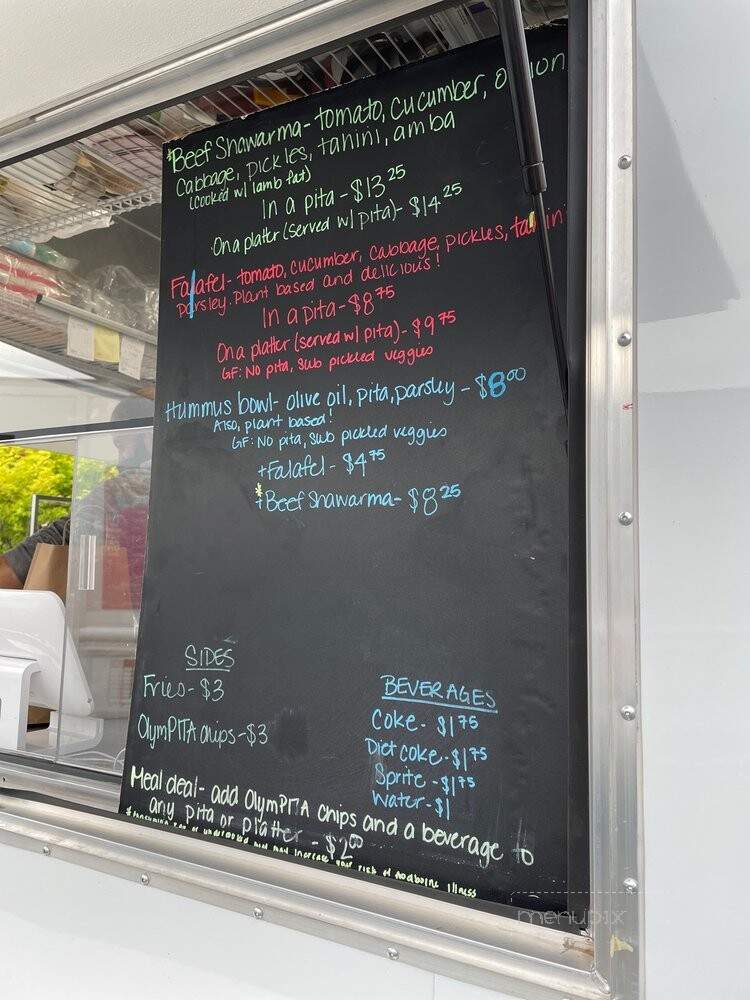 *Beef Shawarma- tomato, cucumber, onion
Cabbage, pickles, tahini, amba
(cooked w/ lamb fat)
In a pita - $13 25
On a platter (served w/ pita)- $14 25
Falafel- tomato, cucumber, cabbage, pickles, tahini
parsley. Plant based and delicious!
In a pita- $8 75
On a platter (served w/ pita)- $9 75
GF: NO pita, sub pickled veggies
Hummus bowl- olive oil, pita, parsley - $8 00
Also, plant based!
GF: NO pita, sub pickled veggies
+Falafel - $4 75
*
+Beef Shawarma- $8 25
SIDES
Fries- $3
OlymPITA chips-$3
BEVERAGES
Coke- $1 75
Diet coke-$1 75
Sprite -$1 75
Water-$1
Meal deal- add OlymPITA chips and a beverage to
any pita or platter - $2 00
*consuming raw or undercooked may increase your risk of foodborne illness
menupix